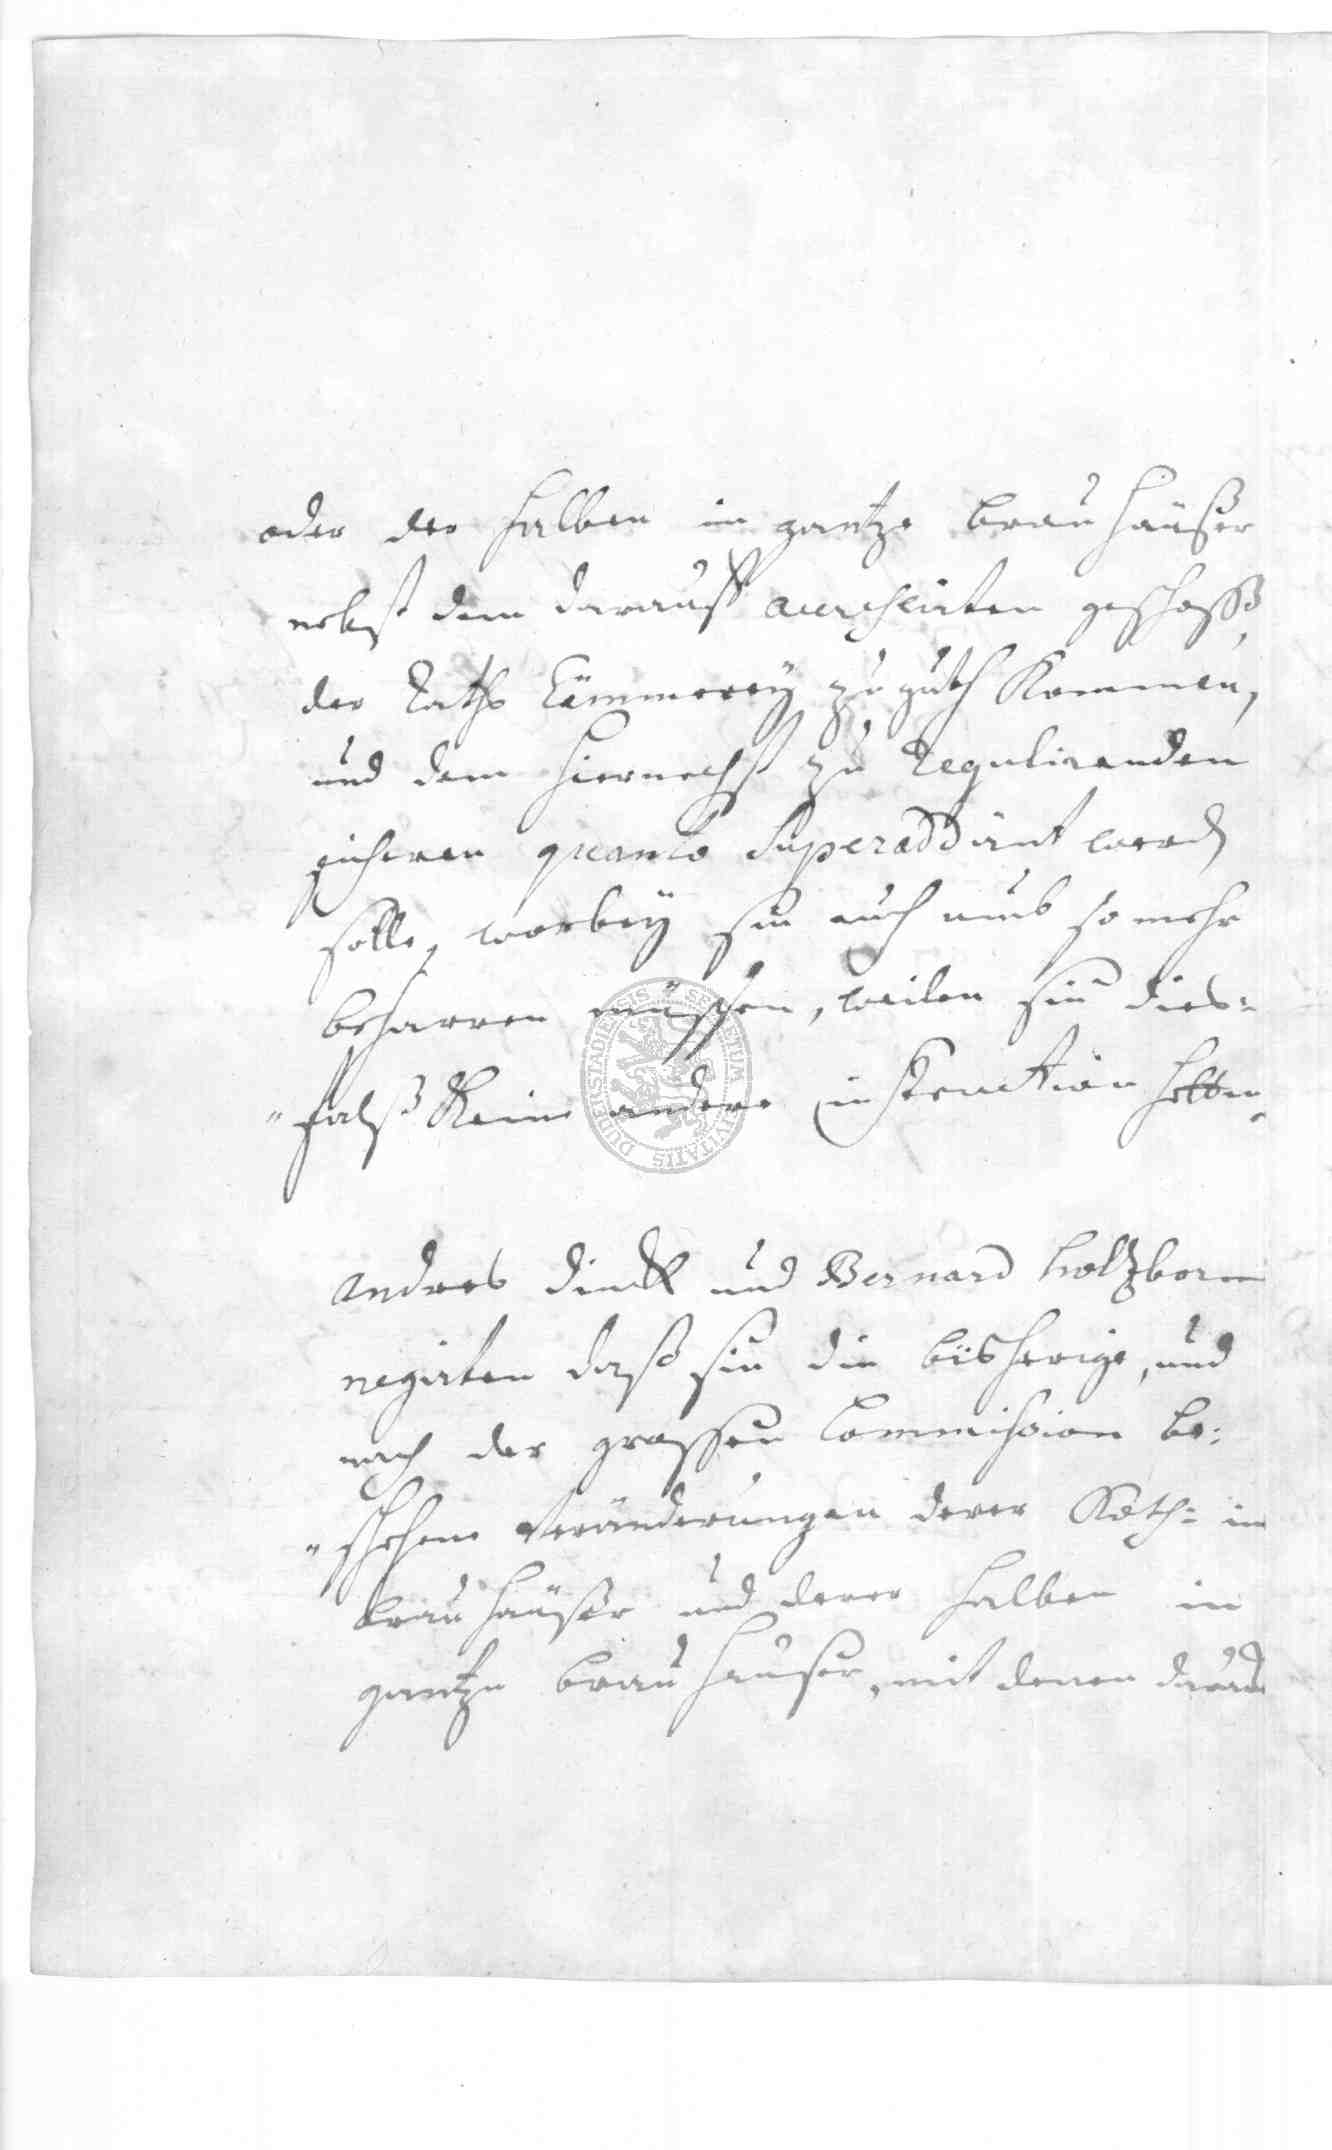 oder der halben in gantze brau häußer
nebst dem darauß accrescirten geschosß,
der Raths Cämmerey zu guth kommen,
und dem hiernechst zu Regulirenden
sicheren quanto Superaddirt werd
solle, worbey sie auch umb so mehr
beharren müssen, weilen sie dies=
"falß keine andere instruction hetten,
Andres Dinckl und Bernard Holtzborn
negirten daß sie die bisherige, und
nach der grossen Commission be:
"schehene Veränderungen derer Koth= in
brau häußer und derer halben in
gantze brau häuser, mit denen daran
SECRETUM CIVITATIS DUDERSTADIENSIS